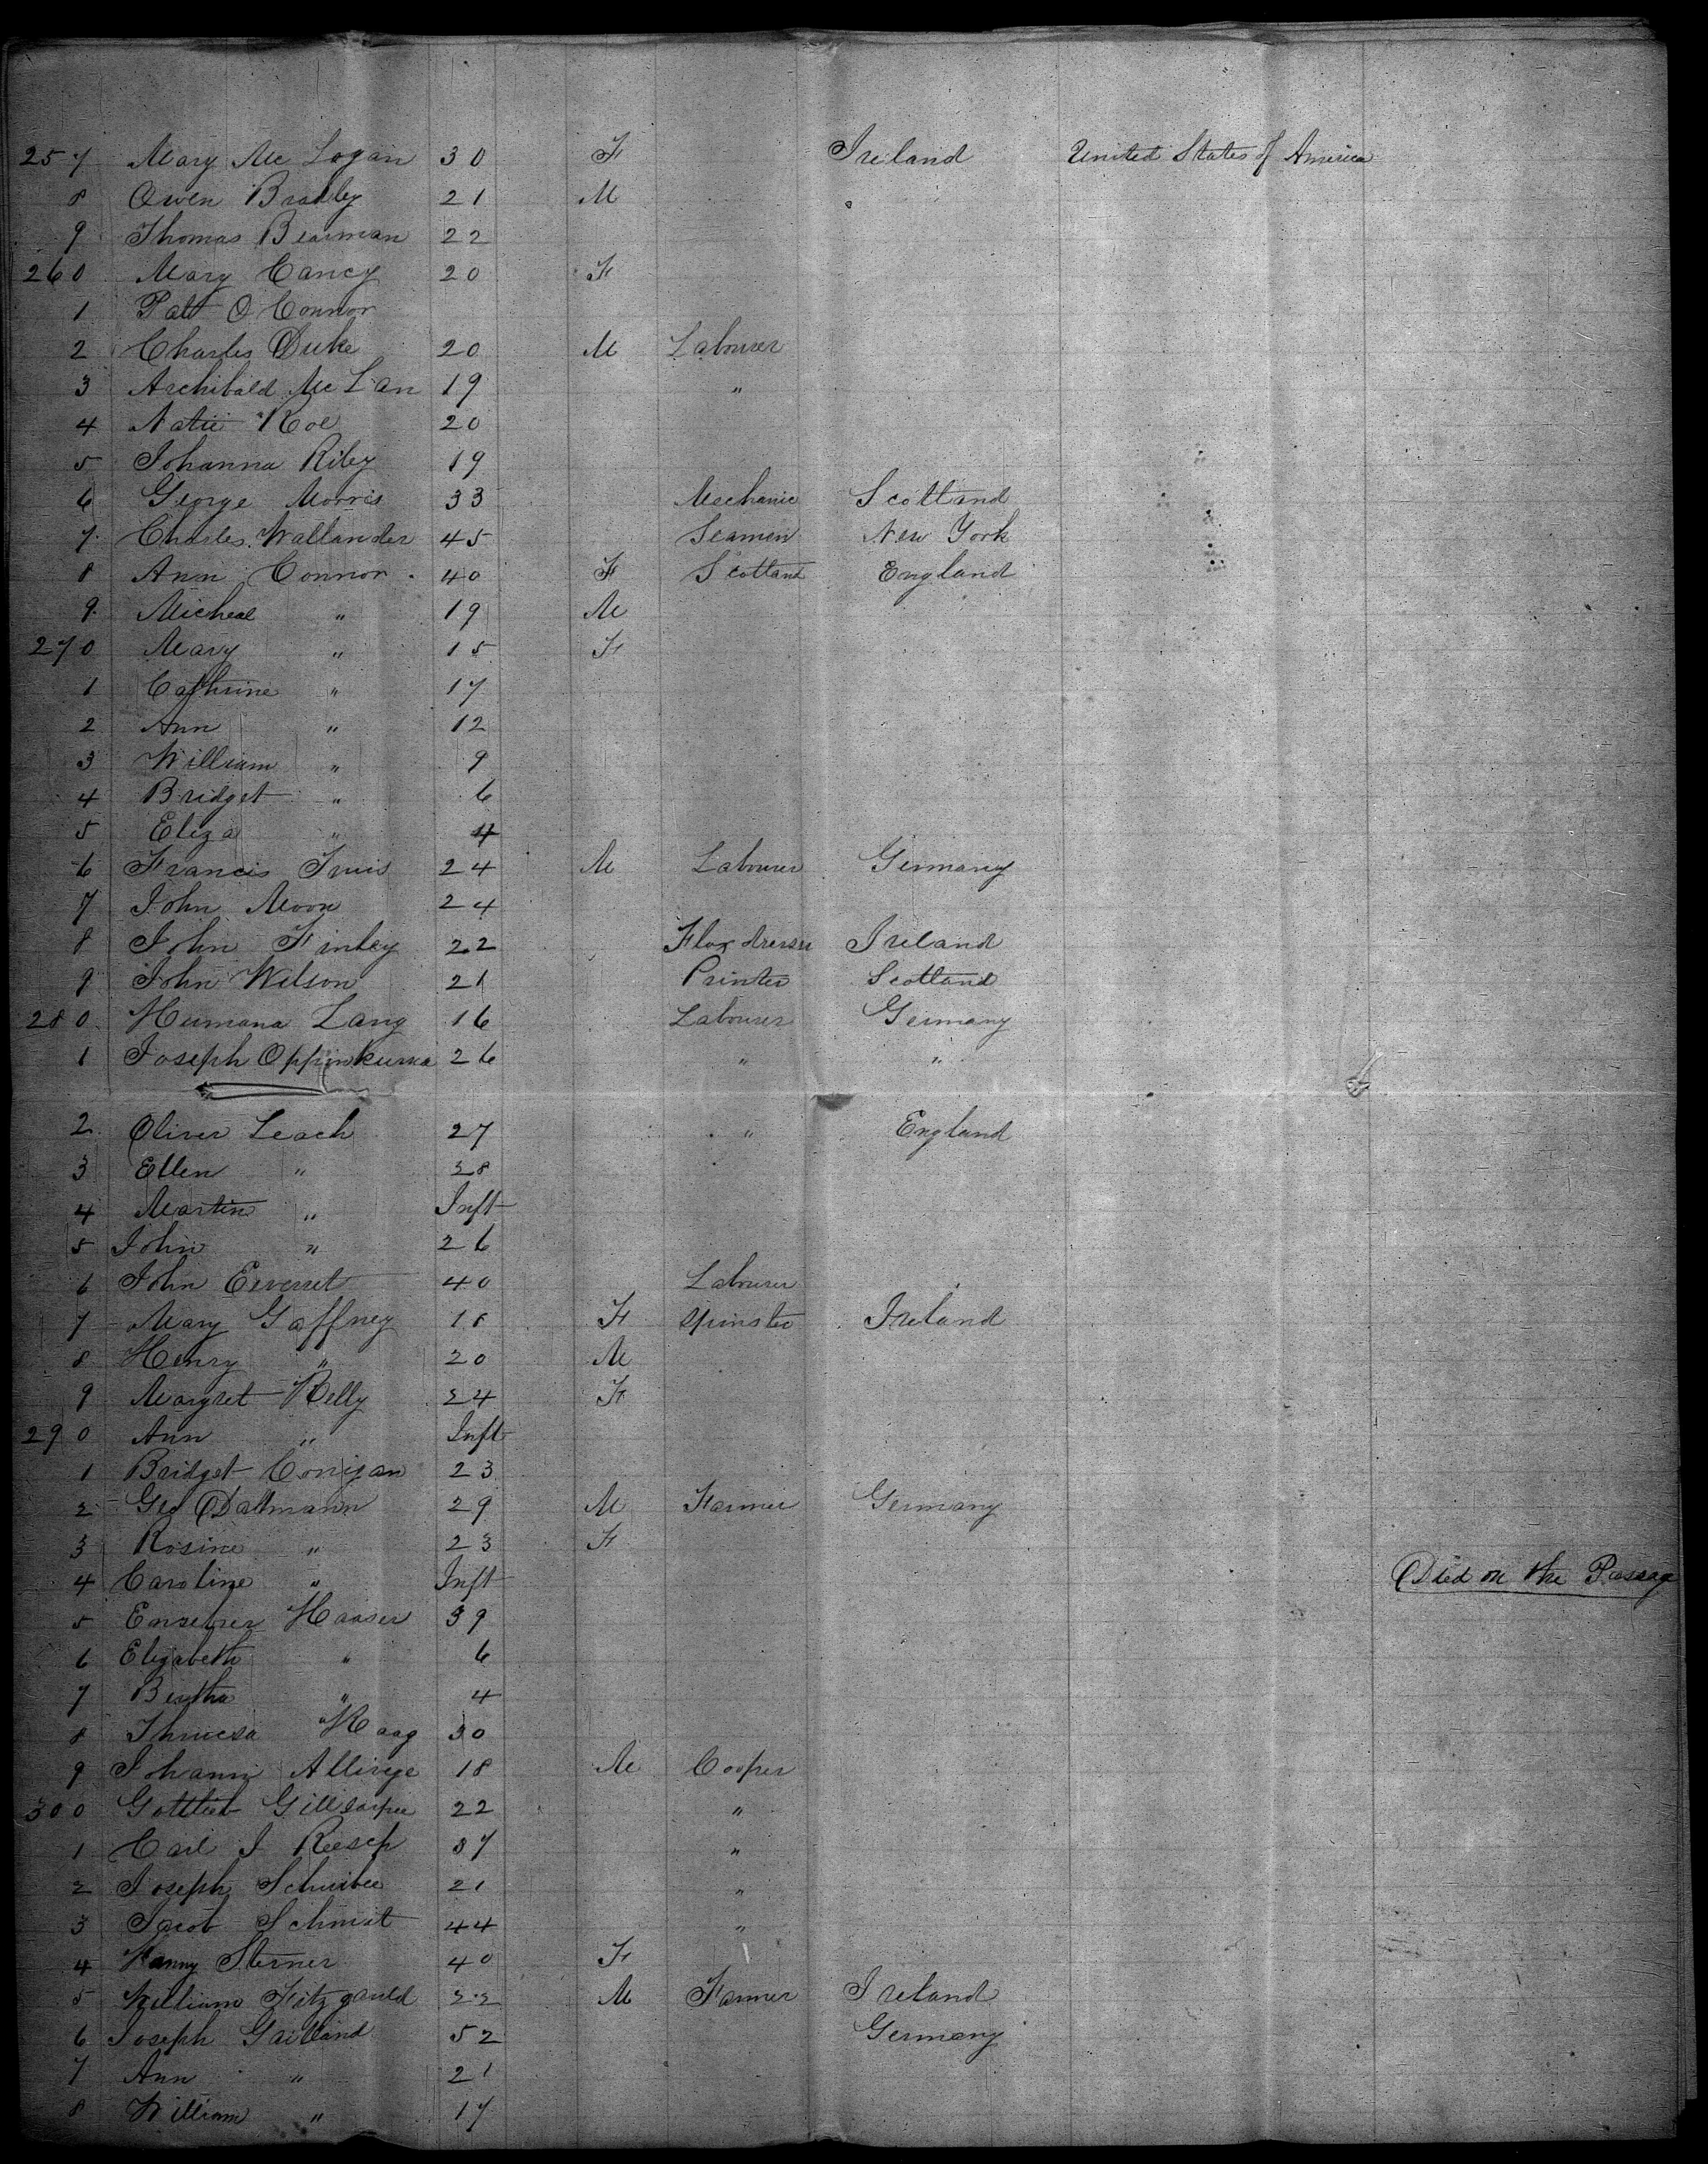 257 Mary Mc Logan 30 F Ireland United States of America
8 Owen Bradley 21 M
9 Thomas Bearman 22
260 Mary Cancy 20 F
1 Patt O Connor
2 Charles Duke 20 M Labourer
3 Archibald Mc Lan 19 "
4 Natie Roe 20
5 Johanna Riley 19
6 George Morris 33 Mechanic Scotland
7 Charles Wallander 45 Seamen New York
8 Ann Connor 40 F Scotland England
9 Micheal " 19 M
270 Mary " 15 F
1 Cathrine " 17
2 Ann " 12
3 William " 9
4 Bridget " 6
5 Eliza " 4
6 Francis 24 M Labourer Germany
7 John Moon 24
8 John Finley 22 Flax dresser Ireland
9 John Wilson 21 Printer Scotland
280 Humana Lang 16 Labourer Germany
1 Joseph 26 " "
2 Oliver Leach 27 " England
3 Ellen " 28
4 Martin " Inft
5 John " 26
6 John Eeverset 40 Labourer
7 Mary Gaffney 18 F Spinster Ireland
8 Henry " 20 M
9 Margret Kelly 24 F
290 Ann " Inft
1 Bridget Conigan 23
2 Geo Dallmann 29 M Farmer Germany
3 Rosine " 23 F
4 Caroline " Inft Died on the Passage
5 Haaser 39
6 Elizabeth " 6
7 Bertha " 4
8 Haag 30
9 Johann 18 M Cooper
300 Gottlieb 22 "
1 Carl J Reesch 37 "
2 Joseph 21 "
3 Jacob Schmit 44 "
4 Fanny Sterner 40 F
5 William Fitzgarild 22 M Farmer Ireland
6 Joseph 52 Germany
7 Ann " 21
8 William " 17